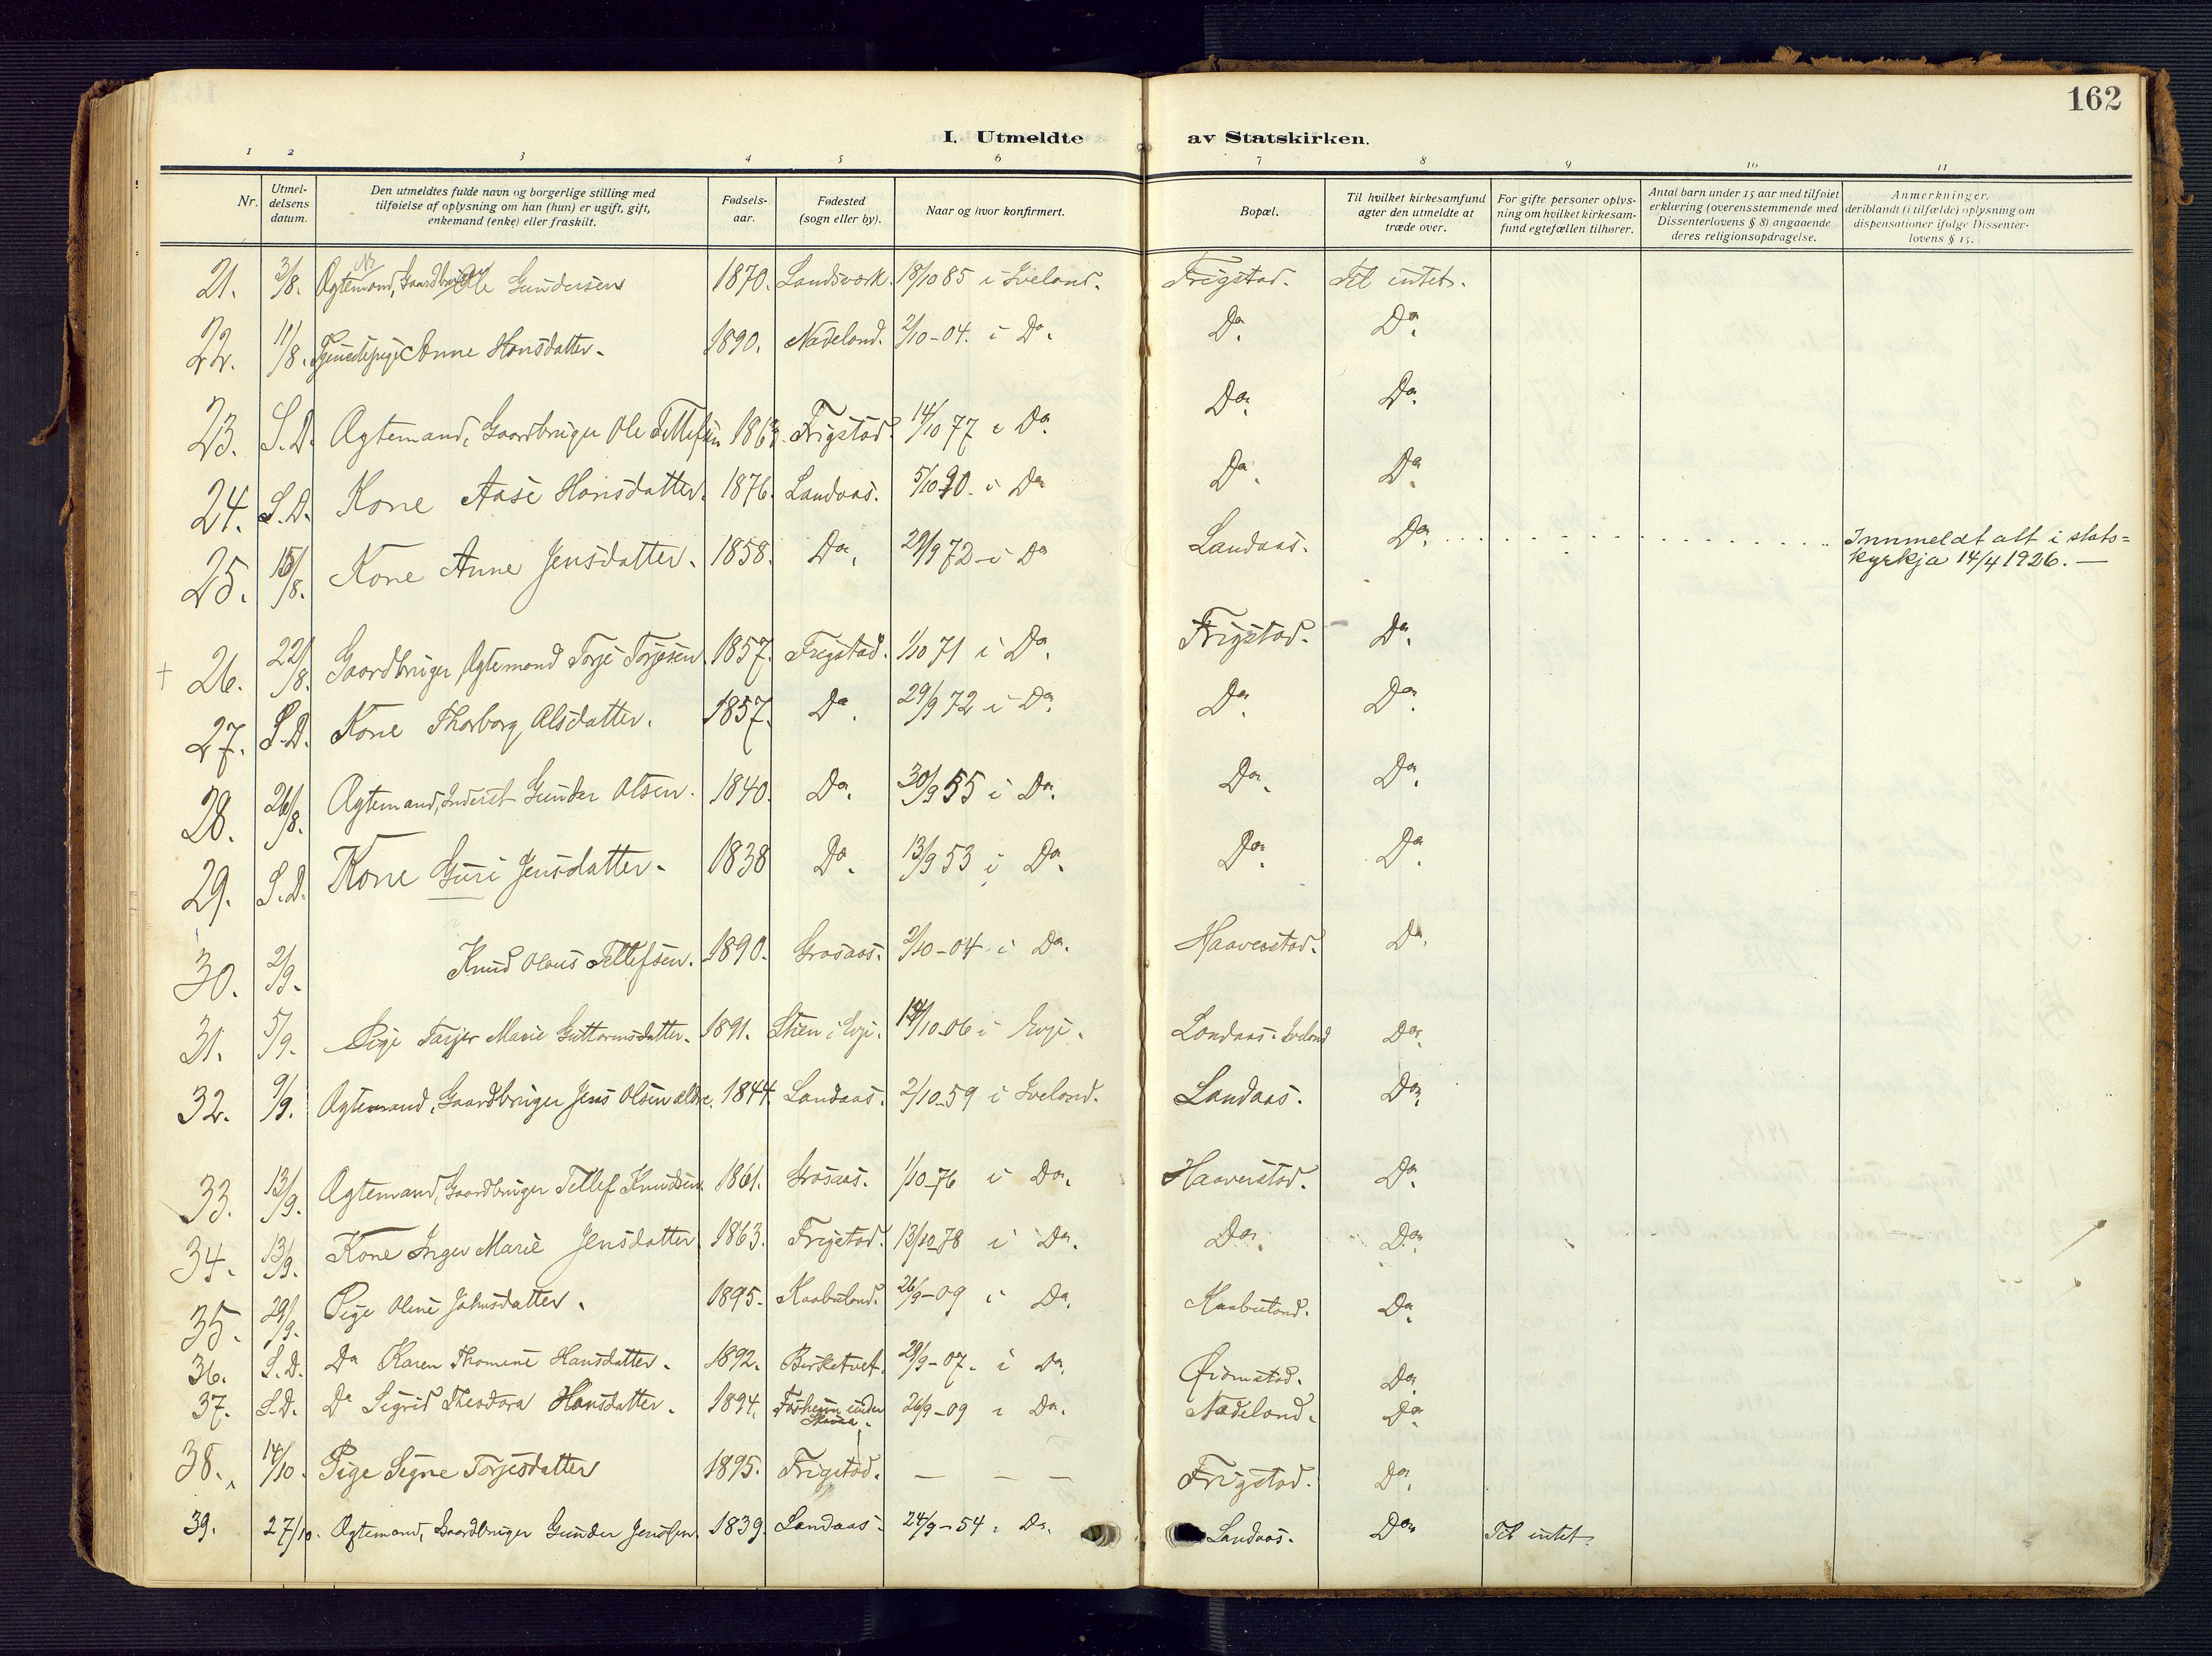 162
I. Utmeldte av Statskirken.
1 2 3 4 5 6 7 8 9 10 11
Nr.
Utmel-
delsens
datum.
Den utmeldtes fulde navn og borgerlige stilling med
tilføielse af oplysning om han (hun) er ugift, gift,
enkemand (enke) eller fraskilt.
Fødsels-
aar.
Fødested
(sogn eller by).
Naar og hvor konfirmert.
Bopæl.
Til hvilket kirkesamfund
agter den utmeldte at
træde over.
For gifte personer oplys-
ning om hvilket kirkesam-
fund egtefællen tilhører.
Antal barn under 15 aar med tilføiet
erklæring (overensstemmende med
Dissenterlovens § 8) angaaende
deres religionsopdragelse.
Anmerkninger,
deriblandt (i tilfælde) oplysning om
dispensationer ifølge Dissenter-
lovens § 15.
21. 3/8. Ægtemand, Gaardbruger Ole Gundersen 1870. Landsverk. 18/10 85 i Iveland. Frigstad. Til intet.
22. 11/8. Tjenestepige Anne Hansdatter. 1890. Nadeland. 2/10-04. i Do. Do. Do.
23. S.D. Ægtemand, Gaardbruger Ole Tellefsen 1863. Frigstad. 14/10 77 i Do. Do. Do.
24. S.D. Kone Aase Hansdatter. 1876. Landaas. 5/10 90. i Do Do. Do.
25. 15/8. Kone Anne Jensdatter. 1858. Do. 29/9 72 i Do Landaas. Do. Innmeldt att i stats=
kyrkja 14/4 1926. —
† 26. 22/8. Gaardbruger, Ægtemand Torje Torjesen. 1857. Frigstad. 1/10 71 i Do. Frigstad. Do.
27. S.D. Kone Thorborg Olsdatter. 1857. Do. 29/9 72 i Do. Do. Do.
28. 26/8. Ægtemand, Inderst Gunder Olsen. 1840. Do. 30/9 55 i Do. Do. Do.
29. S.D. Kone Guri Jensdatter. 1838 Do. 13/9 53 i Do. Do. Do.
30. 2/9. Knud Olaus Tellefsen. 1890. Grosaas. 2/10-04 i Do. Haaverstad. Do.
31. 5/9. Pige Marie Guttormsdatter. 1891. i Evje. 14/10-06 i Evje. Landaas i Iveland Do.
32. 9/9. Ægtemand, Gaardbruger Jens Olsen ældre. 1844. Landaas. 2/10-59 i Iveland. Landaas. Do.
33. 13/9. Ægtemand, Gaardbruger Tellef Knudsen. 1861. Grosaas. 1/10-76 i Do. Haaverstad. Do.
34. 13/9. Kone Inger Marie Jensdatter 1863. Frigstad. 13/10-78 i Do. Do. Do.
35. 29/9. Pige Oline Johnsdatter. 1895. Kaabuland. 26/9-09 i Do. Kaabuland. Do.
36. S.D. Do Karen Thomine Hansdatter. 1892. Birketvet. 29/9-07. i Do. Do.
37. S.D. Do Sigrid Theodora Hansdatter. 1894. under
26/9-09 i Do. Nadeland. Do
38. 14/10. Pige Signe Torjesdatter 1895. Frigstad. — — — Frigstad. Do.
39. 27/10. Ægtemand, Gaardbruger Gunder Jensen. 1839. Landaas. 24/9-54 i Do. Landaas. Do. Til intet.